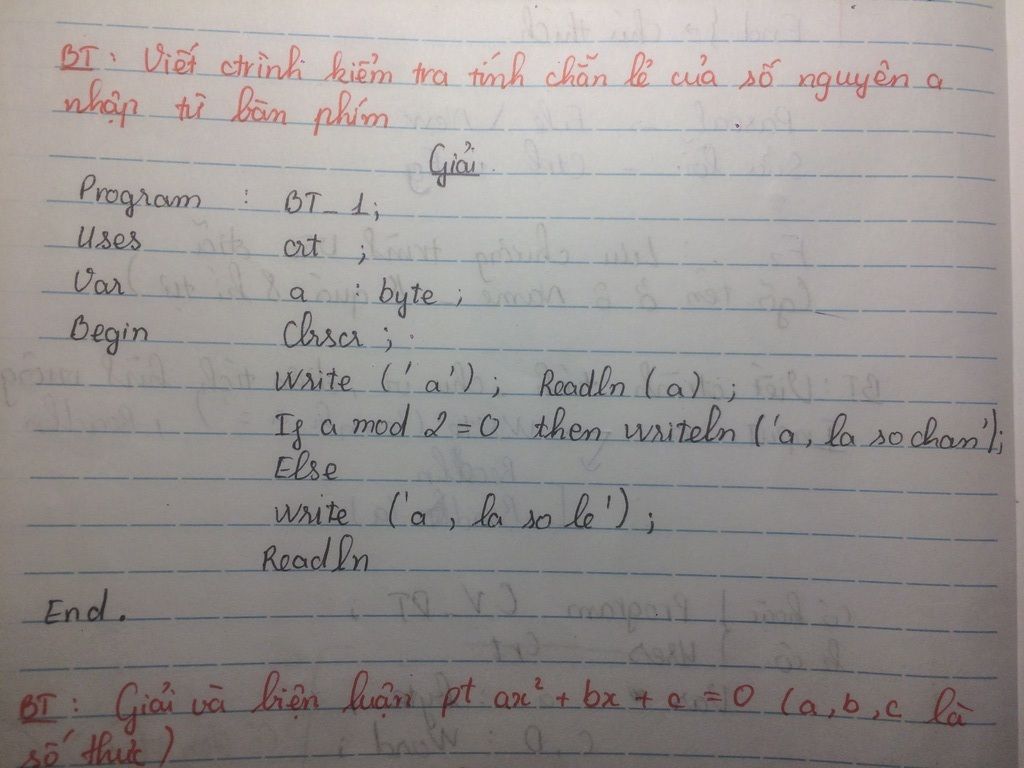 BT: Viết ctrình kiểm tra tính chẵn lẻ của số nguyên a
nhập từ bàn phím
Giải.
Program : BT_1;
Uses crt ;
Var a : byte ;
Begin Clrscr ;
Write ('a') ; Readln (a) ;
If a mod 2 = 0 then writeln ('a, la so chan');
Else
Write ('a , la so le') ;
Readln
End.
BT : Giải và biện luận pt ax² + bx + c = 0 (a, b, c là
số thực)